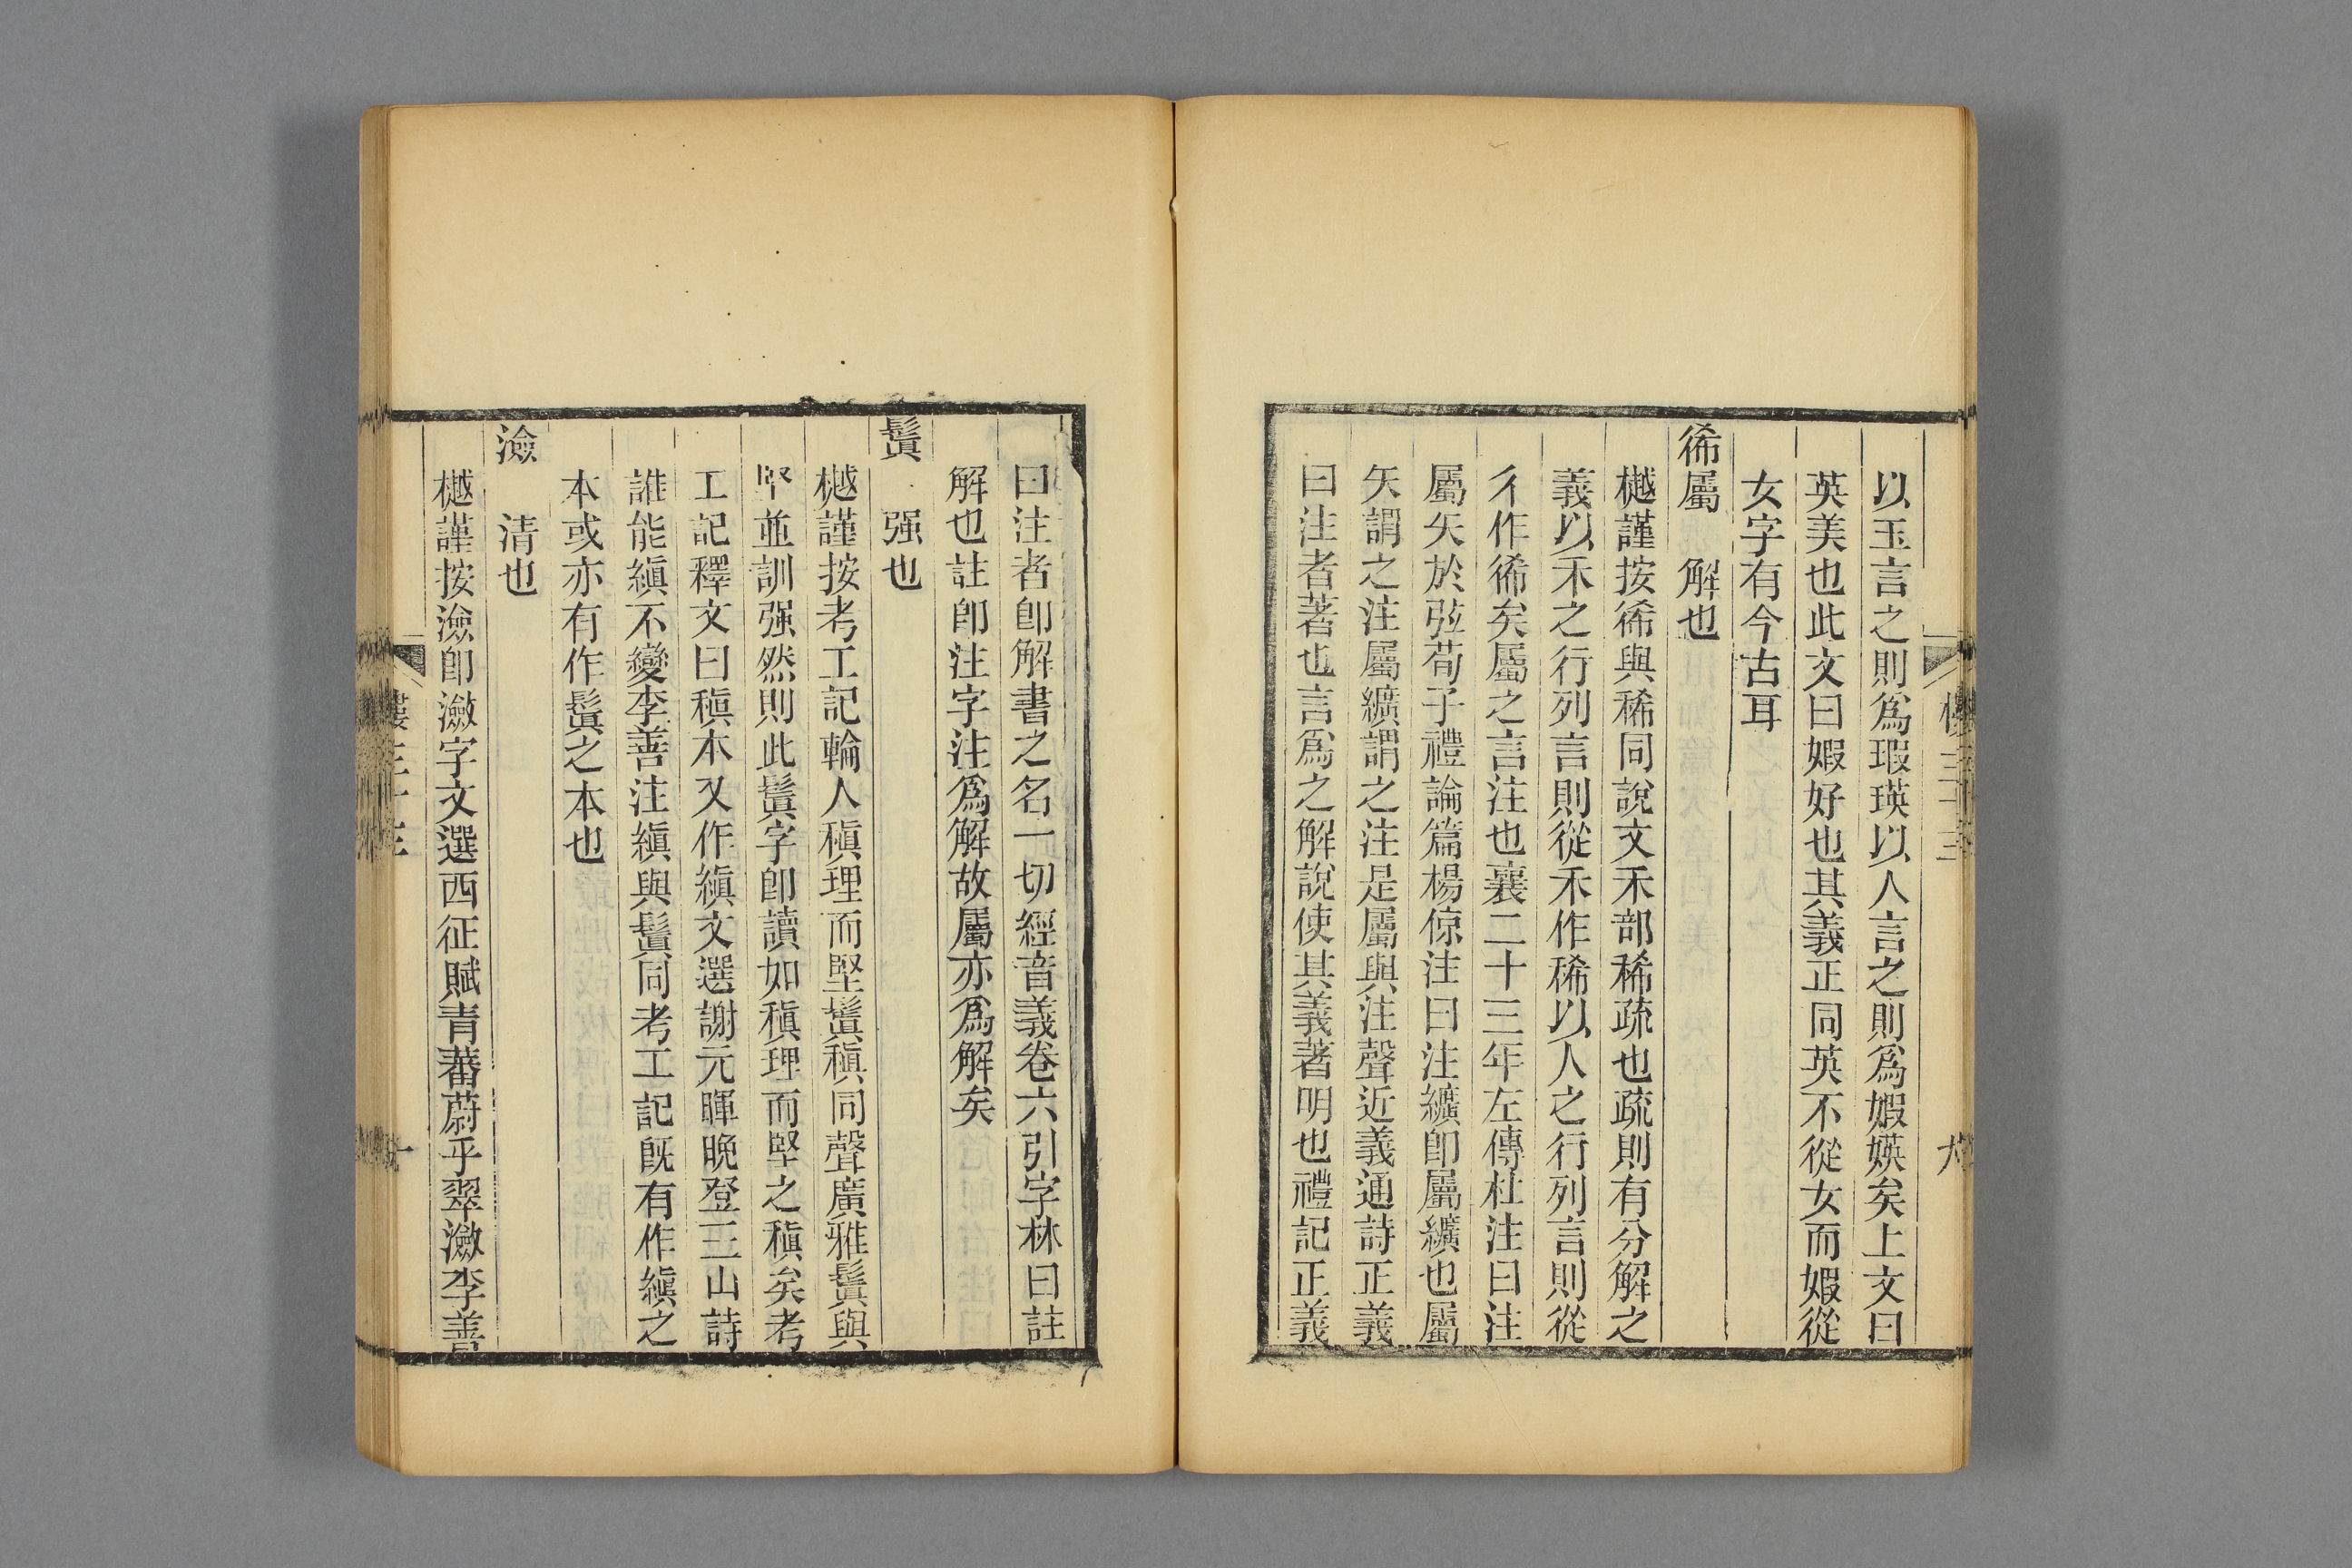 以玉言之則爲瑕瑛以人言之則爲婽媖矣上文曰
英美也此文曰婽好也其義正同英不從女而婽從
女字有今古耳
㣟屬　解也
樾謹按㣟與稀同說文禾部稀疏也疏則有分解之
義以禾之行列言則從禾作稀以人之行列言則從
彳作㣟矣屬之言注也襄二十三年左傳杜注曰注
屬矢於弦荀子禮論篇楊倞注曰注纊卽屬纊也屬
矢謂之注屬纊謂之注是屬與注聲近義通詩正義
曰注者著也言爲之解說使其義著明也禮記正義
九
曰注者卽解書之名一切經音義卷六引字林曰註
解也註卽注字注爲解故屬亦爲解矣
鬒　强也
樾謹按考工記輪人稹理而堅鬒稹同聲廣雅鬒與
堅並訓强然則此鬒字卽讀如稹理而堅之稹矣考
工記釋文曰稹本又作縝文選謝元暉晚登三山詩
誰能縝不變李善注縝與鬒同考工記旣有作縝之
本或亦有作鬒之本也
澰　清也
樾謹按澰卽瀲字文選西征賦青蕃蔚乎翠瀲李善
十